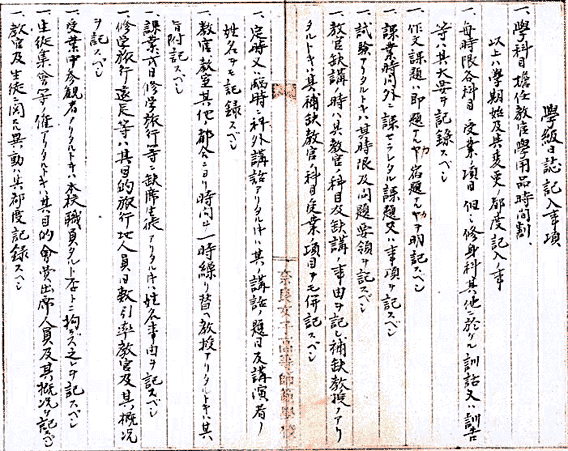 學級日誌記入事項
一、學科目擔任教官學用品時間割
以上ハ學期始及其変更ノ都度記入ノ事
一、毎時限各科目ノ受業ノ項目但シ修身科其他ニ於ケル訓話又ハ訓告
等ハ其大要ヲ記録スベシ
一、作文課題ハ即題ナルヤ宿題ナルヤヲ明記スベシ
一、課業時間外ニ課セラレタル課題又ハ事項ヲ記スベシ
一、試験アリタルトキハ其時限及問題要領ヲ記スベシ
一、教官缺講ノ時ハ其教官ノ科目及缺講ノ事由ヲ記シ補缺教授ノアリ
タルトキハ其補缺教官ノ科目受業ノ項目ヲモ併記スベシ
奈良女子高等師範學校
一、定時又ハ臨時ニ科外講話アリタル時ハ其ノ講話ノ題目及講演者ノ
姓名ヲモ記録スベシ
一、教官教室其他ノ都合ニヨリ時間ヲ一時繰リ替ヘ教授アリタルトキハ其
旨附記スベシ
一、課業式日修学旅行等ニ缺席生徒アリタル時ハ姓名事由ヲ記スベシ
一、修学旅行遠足等ハ其目的旅行地人員日数引率教官及其概况
ヲ記スベシ
一、受業中参観者アリタルトキハ本校職員タルト否トニ拘ハラズ之レヲ記スベシ
一、生徒集會等ノ催アリタルトキハ其目的會費出席人員及其概况ヲ記スベシ
一、教官及生徒ニ関スル異動ハ其都度記録スベシ